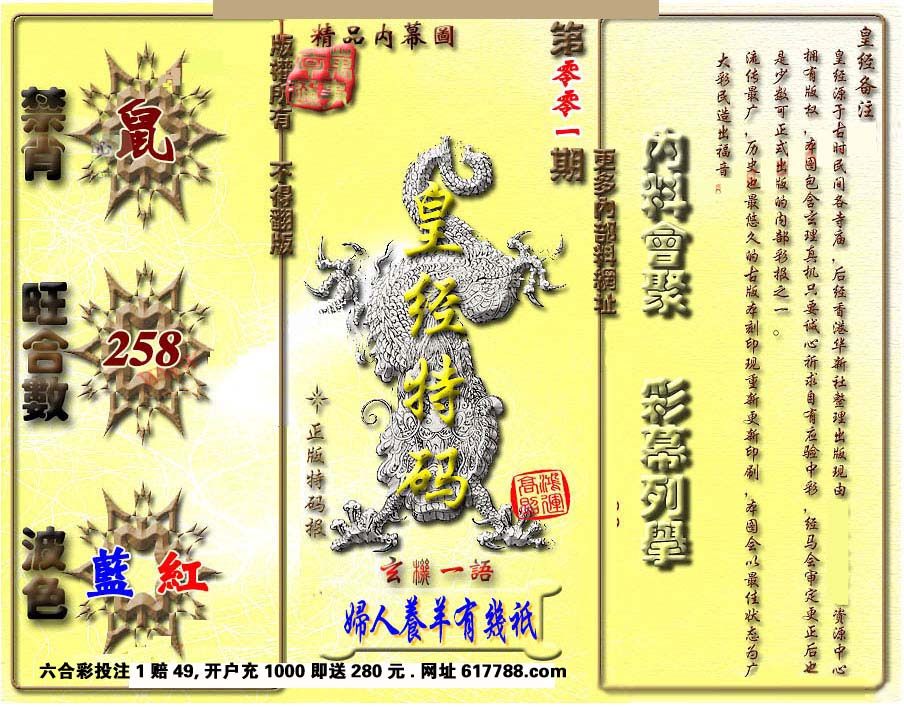 精品內幕圖
第零零一期
版權所有 不得翻版
更多內部料網址
禁肖
鼠
旺合數
258
波色
藍 紅
皇经特码
正版特码报
鴻運高照
玄機一語
婦人養羊有幾祇
內料會聚 彩幕列舉
皇经备注
皇经源于古时民间各寺庙,后经香港华新社整理出版现由 资源中心
拥有版权,本图包含玄理真机只要诚心祈求自有应验中彩,经马会审定更正后也
是少数可正式出版的内部彩报之一。
流传最广,历史也最悠久的古版本刻印现重新更新印刷,本图会以最佳状态为广
大彩民造出福音
六合彩投注 1 赔 49, 开户充 1000 即送 280 元 . 网址 617788.com